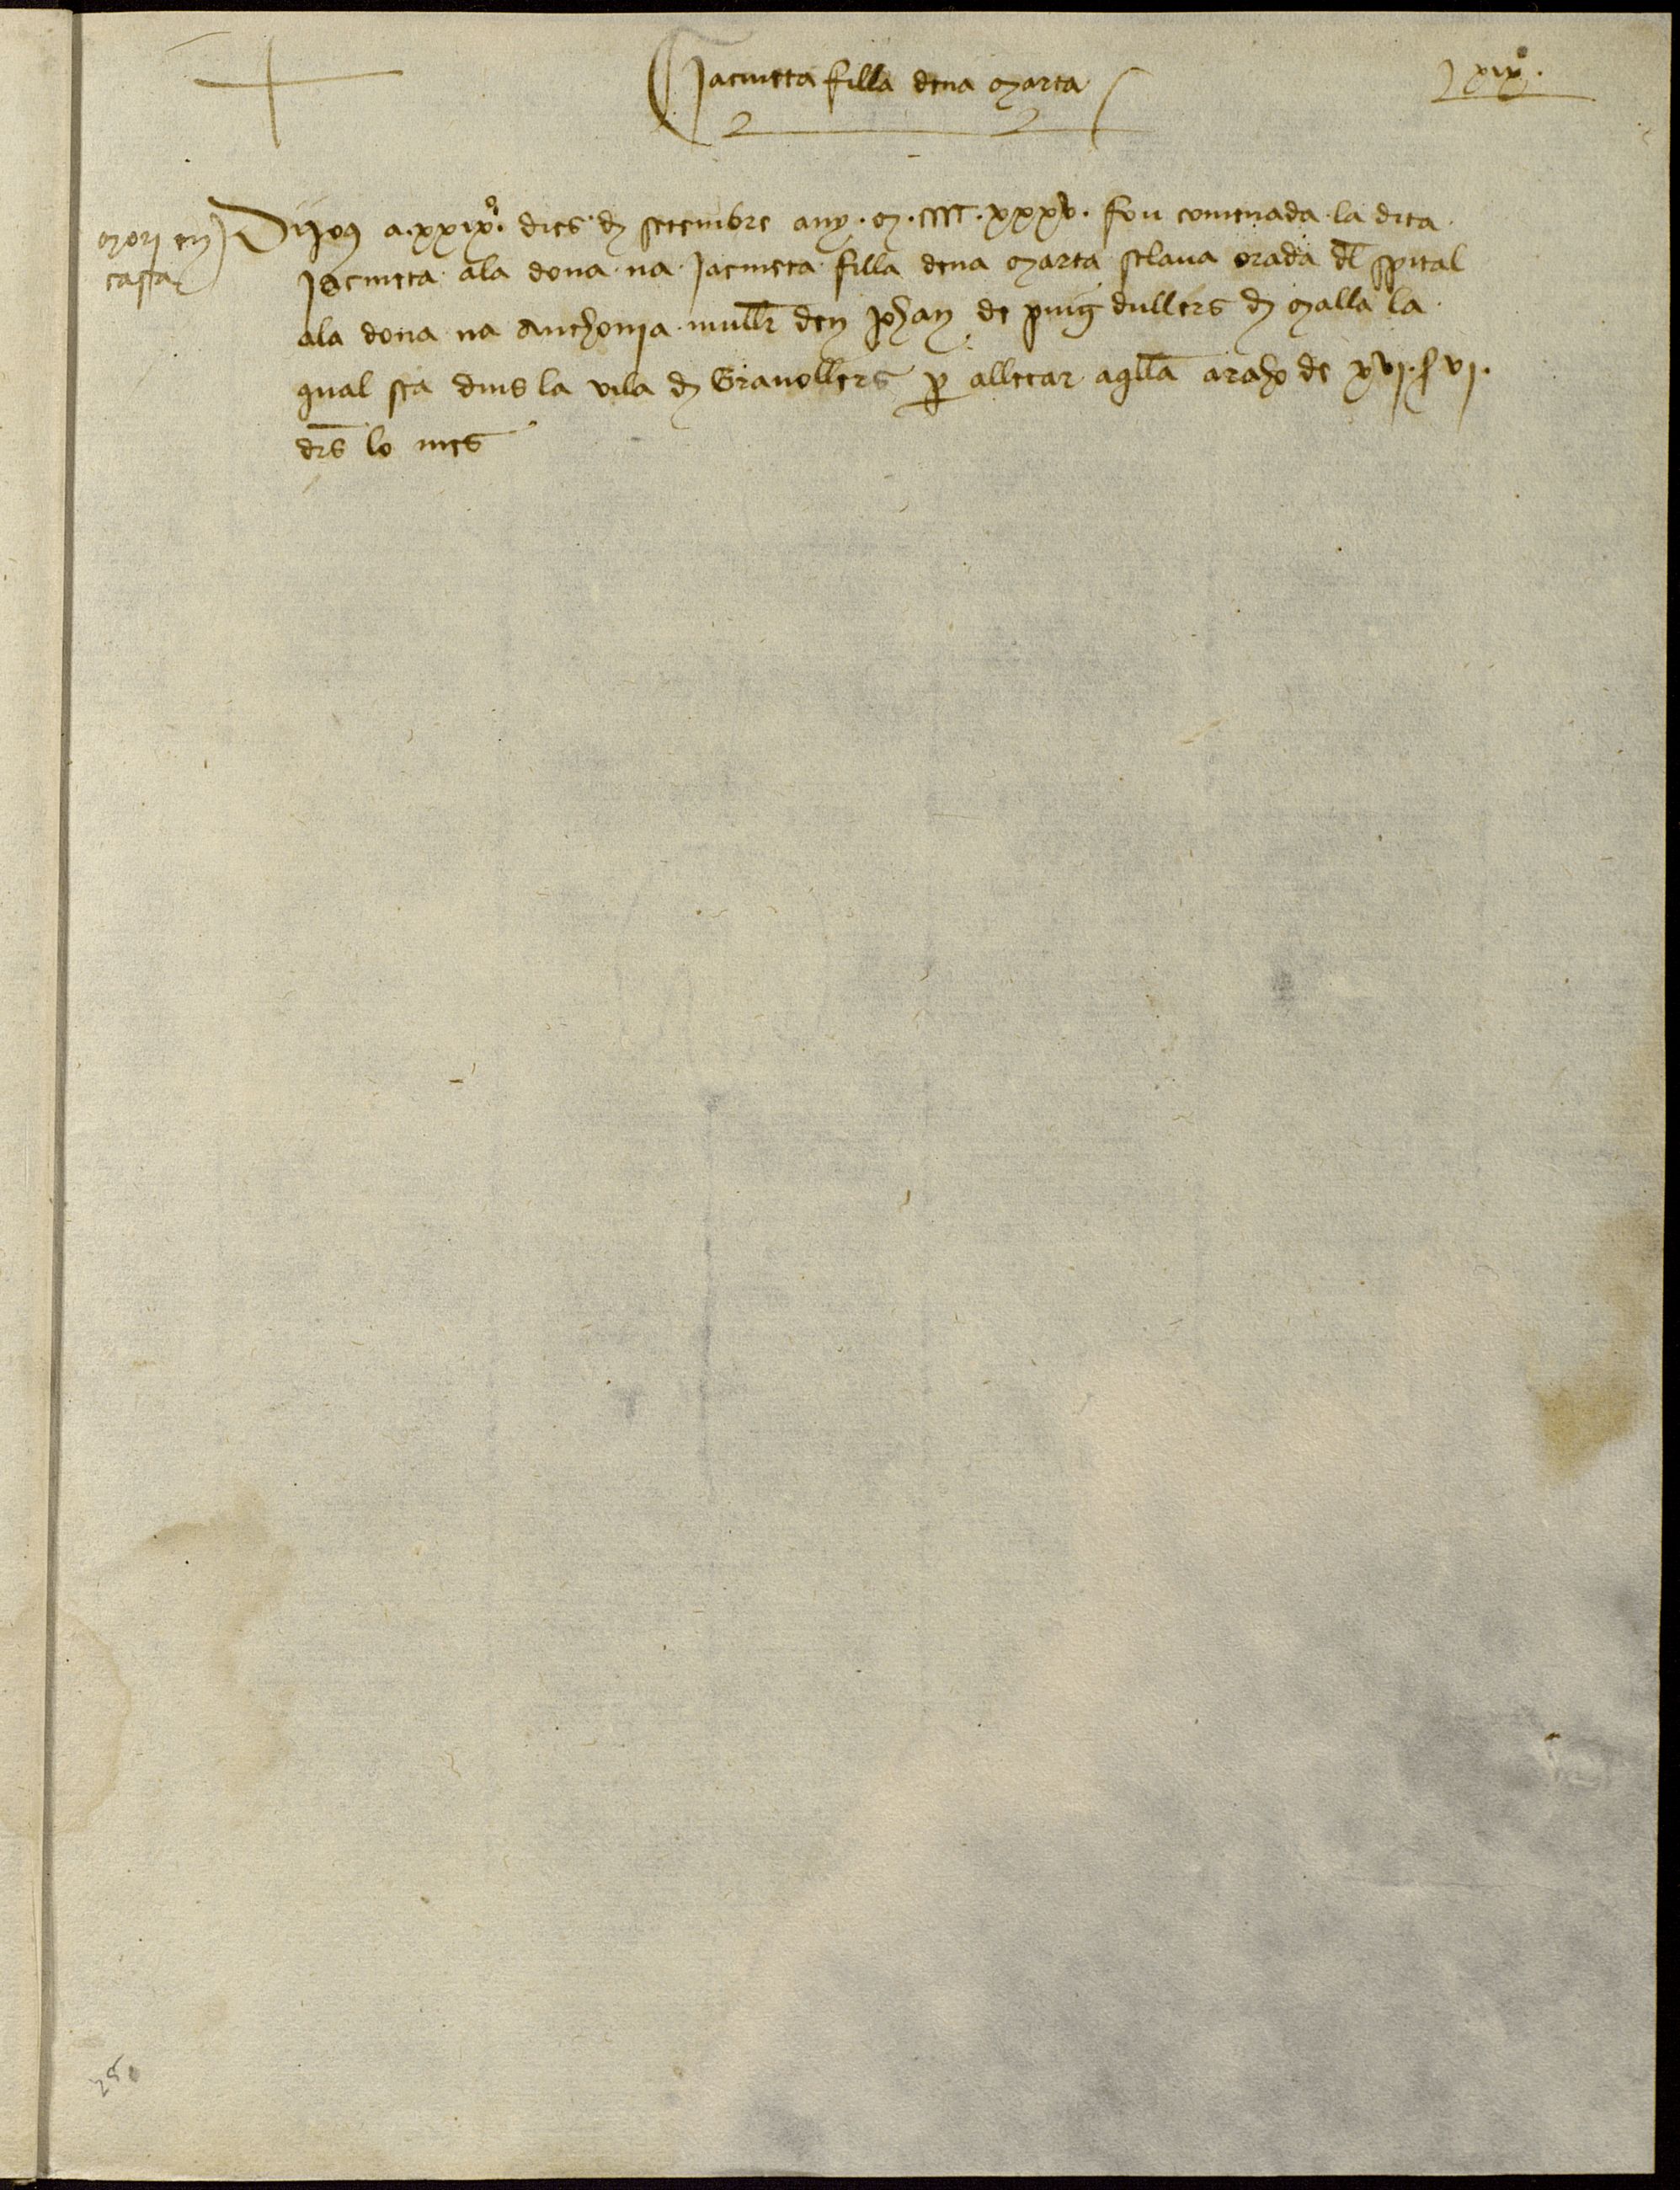 Jacmeta filla dena Marta
Lxixº.
Mori en
cassa
Dijos a .xxixº. dies de setembre any .M.CCCC.xxxv. fou comenada la dita
Jacmeta ala dona na Jacmeta filla dena Marta sclaua orada dl spital
ala dona na Anthonia mullr den Johan de puig dullers de Malla la
qual sta dins la vila de Granollers per alletar aqlla a raho de xvi. s vi.
drs lo mes